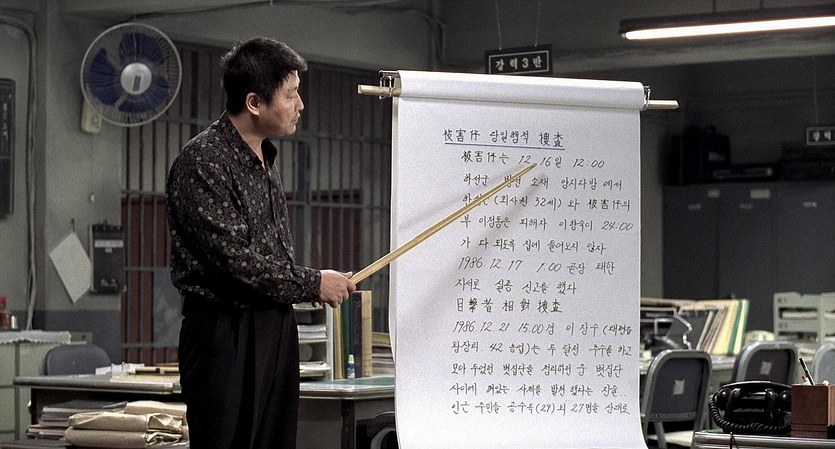 강력3반
被害者 당일행적 搜査
被害者는 12. 16일 12:00
화산군 소재 양지다방에서
(회사원 32세)와 被害者의
부 이정동은 피해자 이향숙이 24:00
가 다 되도록 집에 들어오지 않자
1986. 12. 17 1:00 곧장 태안
지서로 실종 신고를 했다
目擊者 相對 搜査
1986. 12. 21 15:00경 이상수(태령읍
42 농업)는 두 달전 수수를 하고
모아 두었던 볏짚단을 정리하던 중 볏짚단
사이에 껴있는 사체를 발견 했다는 진술..
인근 주민들 공수옥(29)외 27명을 상대로